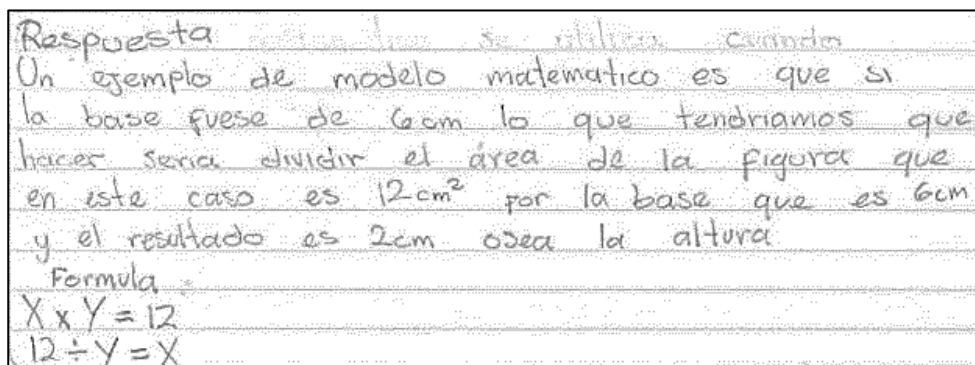 Respuesta se utiliza cuando
Un ejemplo de modelo matematico es que si
la base fuese de 6cm lo que tendriamos que
hacer seria dividir el área de la figura que
en este caso es 12cm² por la base que es 6cm
y el resultado es 2cm osea la altura
Formula:
X x Y = 12
12 ÷ Y = X